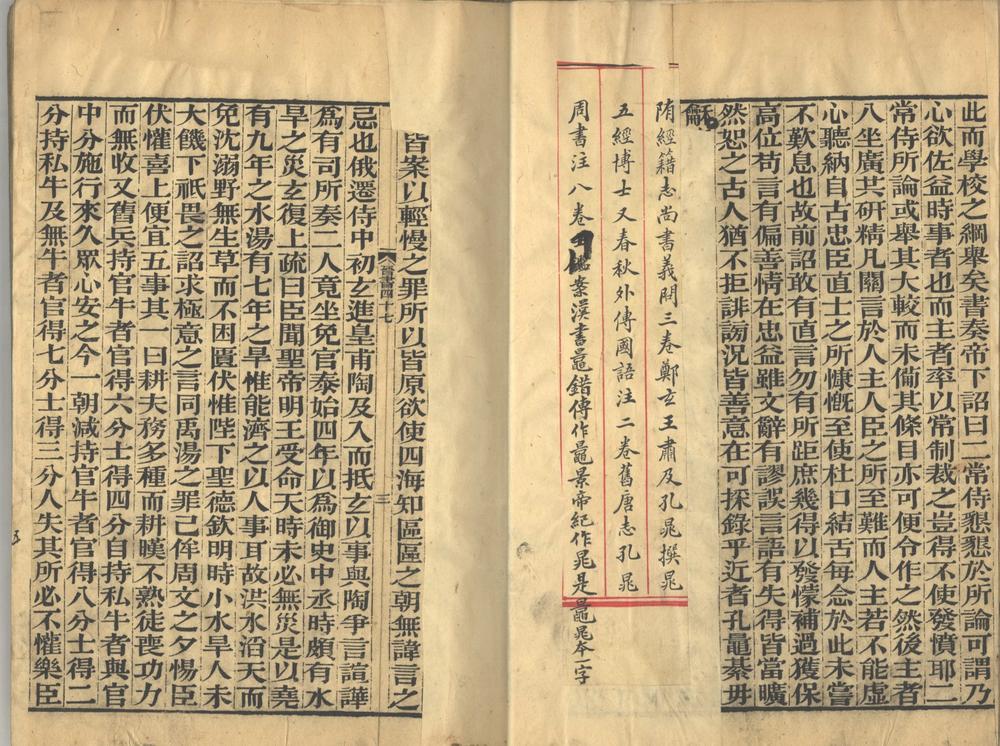 此而學校之綱舉矣書奏帝下詔曰二常侍懇懇於所論可謂乃
心欲佐益時事者也而主者率以常制裁之豈得不使發憤耶二
常侍所論或舉其大較而未僃其條目亦可便令作之然後主者
八坐廣其硏精凡關言於人主人臣之所至難而人主若不能虛
心聽納自古忠臣直士之所慷慨至使杜口結舌每念於此未嘗
不歎息也故前詔敢有直言勿有所距庶幾得以發懞補過獲保
高位苟言有偏善情在忠益雖文辭有謬誤言語有失得皆當曠
然恕之古人猶不拒誹謗況皆善意在可採錄乎近者孔鼂綦毋
龢
隋經籍志尚書義問三卷鄭玄王肅及孔晁撰晁
五經博士又春秋外傳國語注二卷舊唐志孔晁
周書注八卷案漢書鼂錯傳作鼂景帝紀作晁是鼂晁本一字
皆案以輕慢之罪所以皆原欲使四海知區區之朝無諱言之
晉書四十七
三
忌也俄遷侍中初玄進皇甫陶及入而抵玄以事與陶爭言諠譁
爲有司所奏二人竟坐免官泰始四年以爲御史中丞時頗有水
旱之災玄復上疏曰臣聞聖帝明王受命天時未必無災是以堯
有九年之水湯有七年之旱惟能濟之以人事耳故洪水滔天而
免沈溺野無生草而不困匱伏惟陛下聖德欽明時小水旱人未
大饑下祇畏之詔求極意之言同禹湯之罪己侔周文之夕惕臣
伏懽喜上便宜五事其一曰耕夫務多種而耕暵不熟徒喪功力
而無收又舊兵持官牛者官得六分士得四分自持私牛者與官
中分施行來久眾心安之今一朝減持官牛者官得八分士得二
分持私牛及無牛者官得七分士得三分人失其所必不懽樂臣